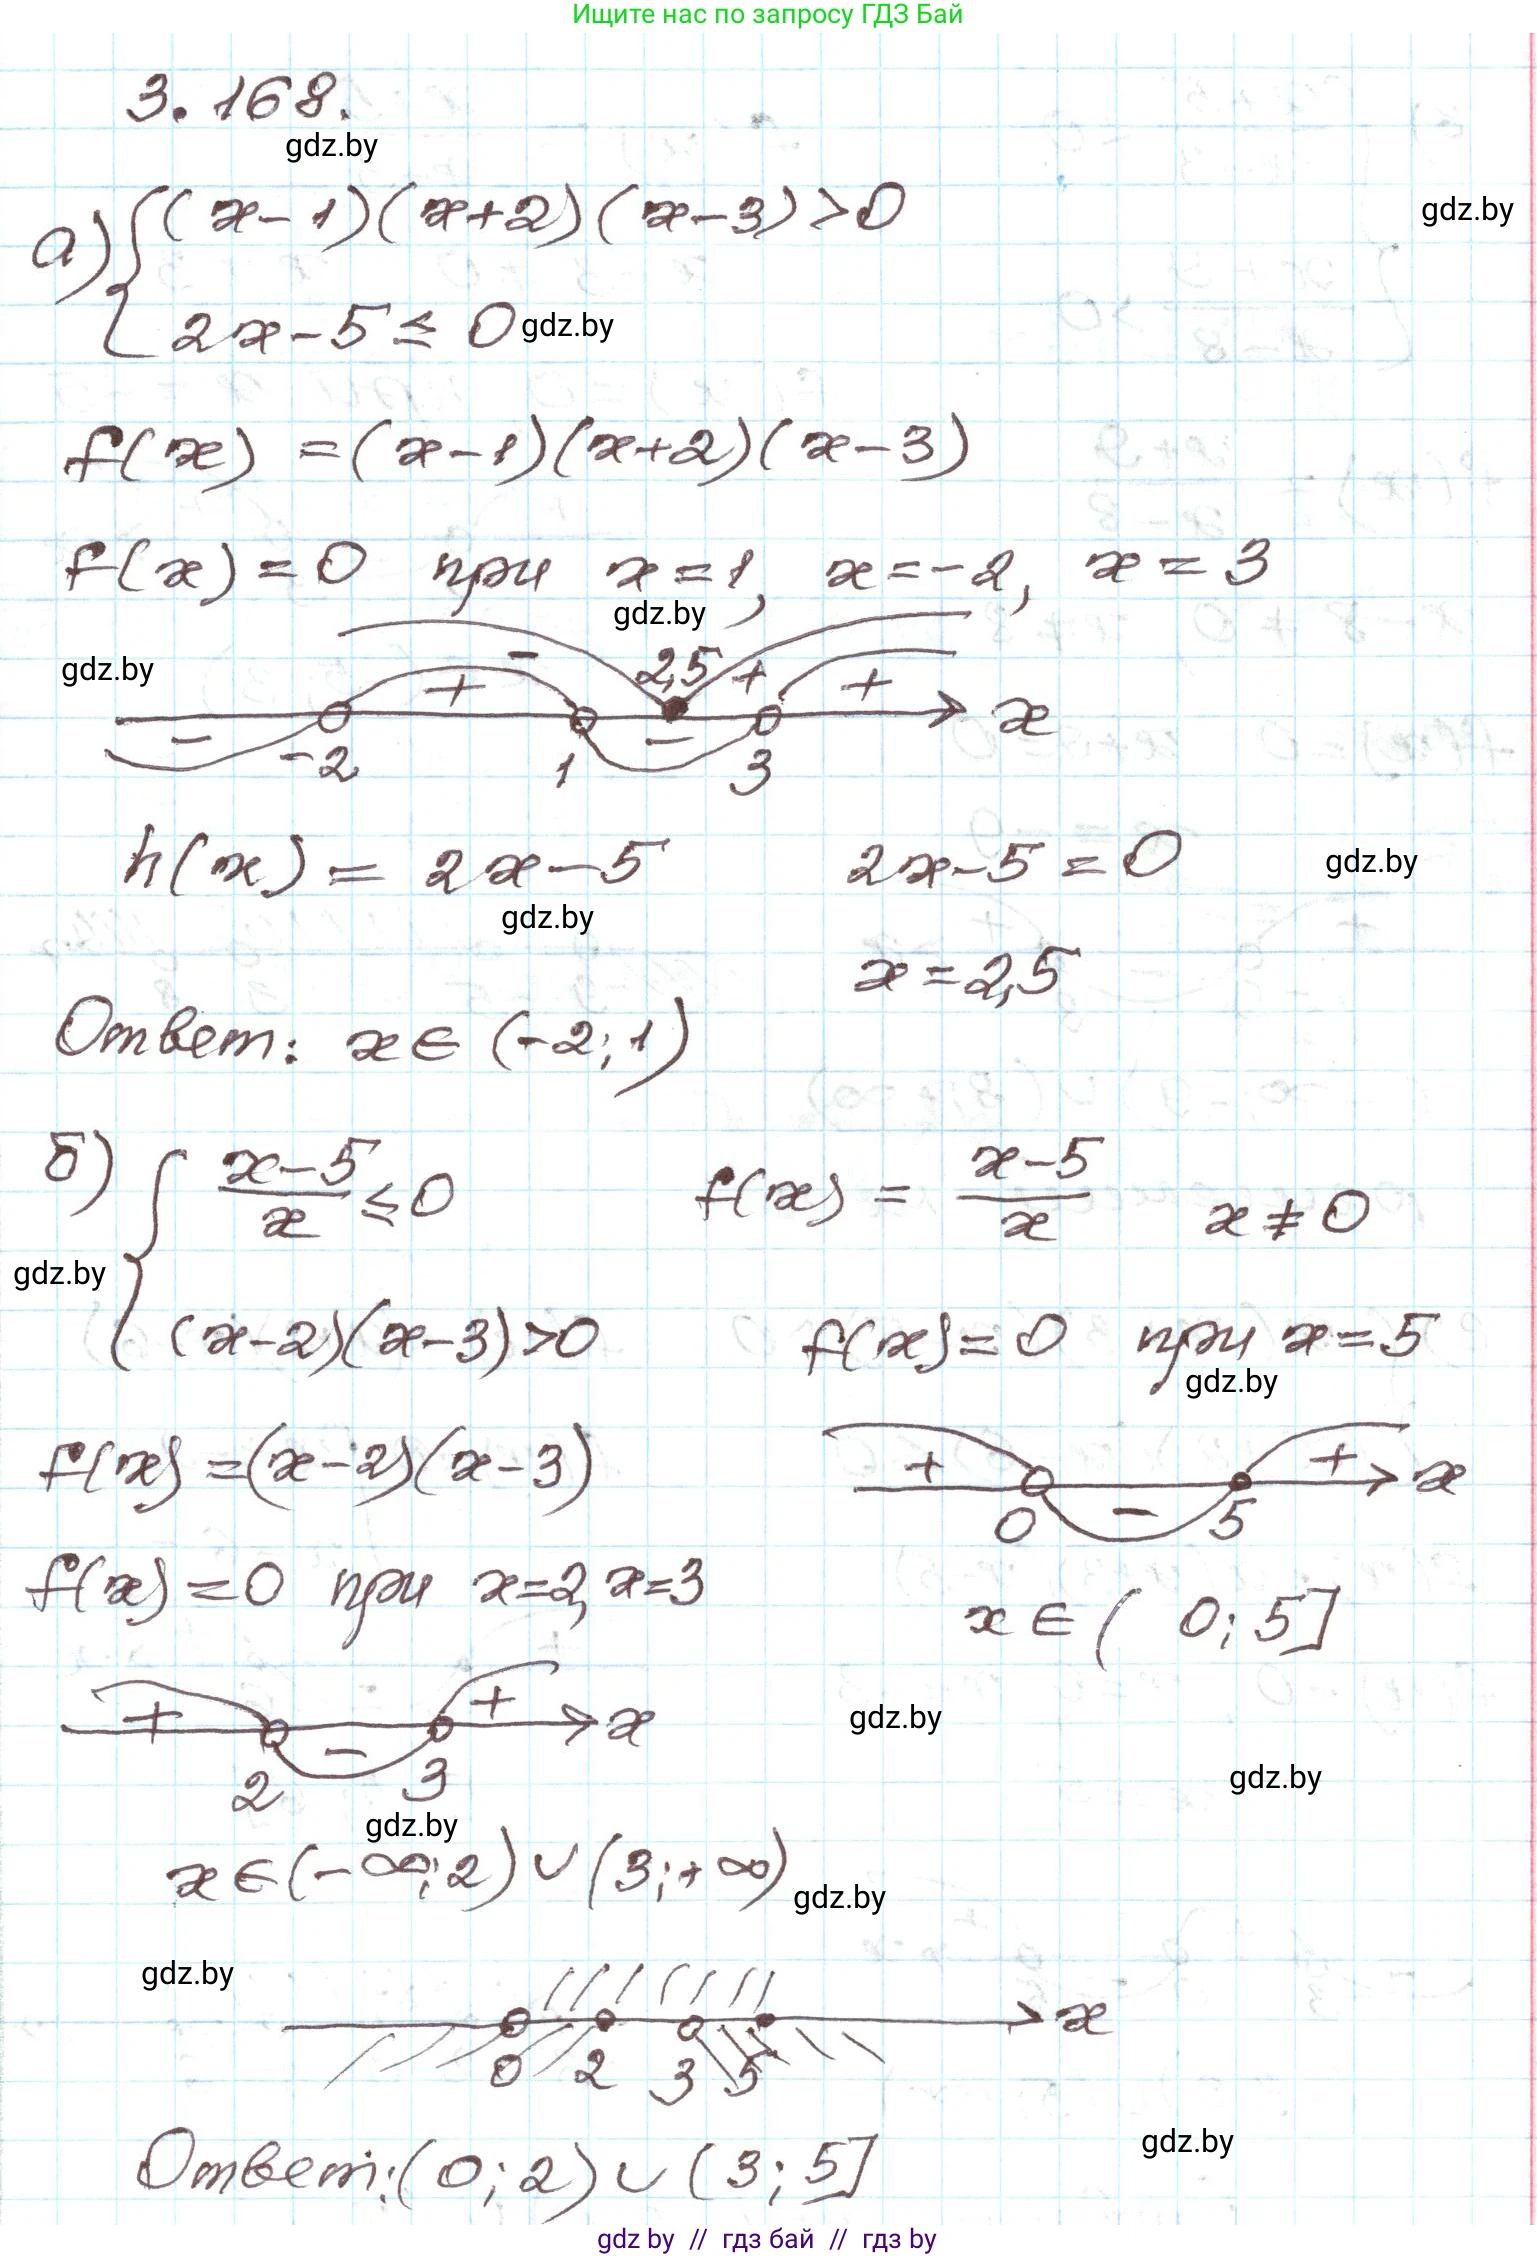 Ищите нас по запросу ГДЗ Бай
3.168.
gdz.by
gdz.by
а) { (x-1)(x+2)(x-3)>0
2x-5≤0
gdz.by
f(x) =(x-1)(x+2)(x-3)
f(x)=0 при x=1, x=-2, x=3
gdz.by
gdz.by
- 2,5 +
+ + x
- -2 1 - 3
h(x) = 2x-5 2x-5=0
gdz.by
gdz.by
x=2,5
Ответ: x∈(-2;1)
б) { (x-5)/x ≤0 f(x) = (x-5)/x x≠0
gdz.by
(x-2)(x-3)>0 f(x)=0 при x=5
gdz.by
f(x)=(x-2)(x-3)
+ + x
0 - 5
f(x)=0 при x=2, x=3
x∈( 0;5]
+ + x
2 - 3
gdz.by
gdz.by
gdz.by
x∈(-∞;2)∪(3;+∞)
gdz.by
gdz.by
x
0 2 3 5
gdz.by
Ответ:(0;2)∪(3;5]
gdz by // гдз бай // гдз by